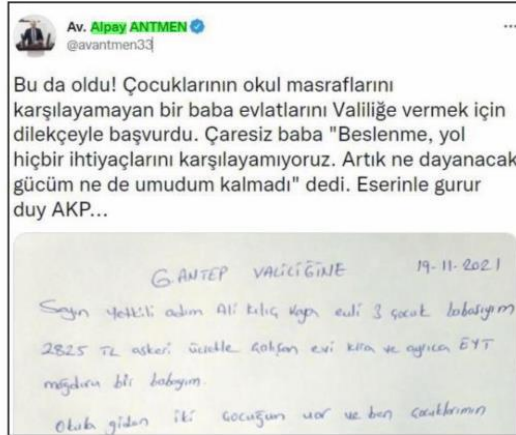 Av. Alpay ANTMEN
@avantmen33
Bu da oldu! Çocuklarının okul masraflarını
karşılayamayan bir baba evlatlarını Valiliğe vermek için
dilekçeyle başvurdu. Çaresiz baba "Beslenme, yol
hiçbir ihtiyaçlarını karşılayamıyoruz. Artık ne dayanacak
gücüm ne de umudum kalmadı" dedi. Eserinle gurur
duy AKP...
G.ANTEP VALİLİĞİNE 19-11-2021
Sayın yetkili adım Ali Kılıç Kaya evli 3 çocuk babasıyım
2825 TL askeri ücretle çalışan evi kira ve ayrıca EYT
mağduru bir babayım.
Okula giden iki çocuğum var ve ben çocuklarımın